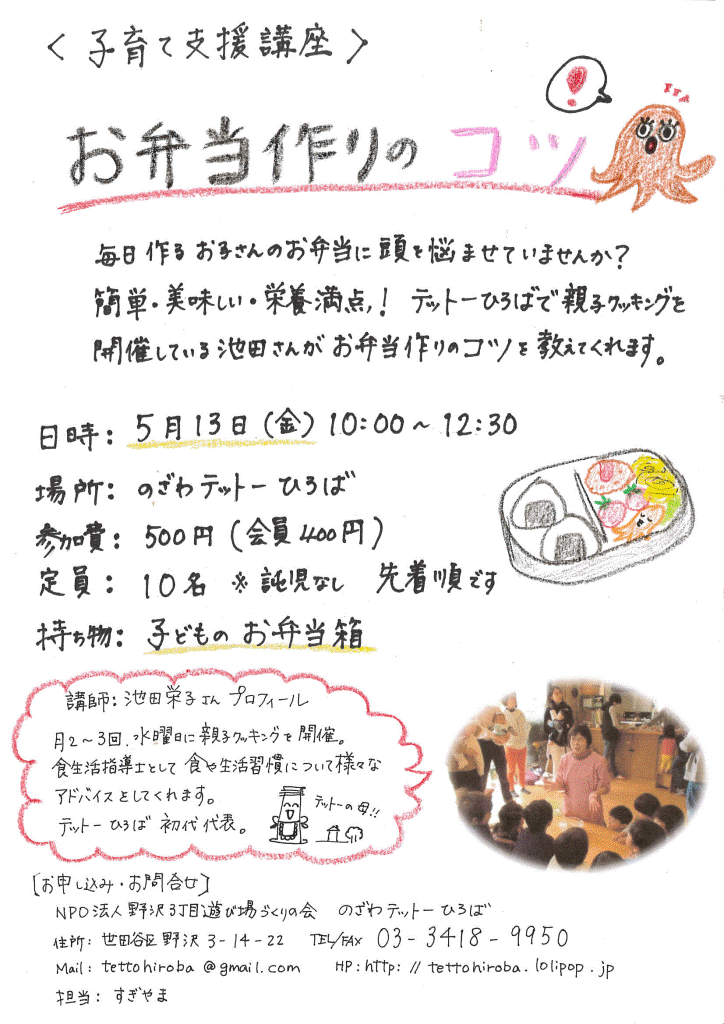 〈子育て支援講座〉
お弁当作りのコツ
毎日作るお子さんのお弁当に頭を悩ませていませんか？
簡単・美味しい・栄養満点！ テットーひろばで親子クッキングを
開催している池田さんがお弁当作りのコツを教えてくれます。
日時： 5月13日（金）10:00〜12:30
場所： のざわテットーひろば
参加費： 500円（会員400円）
定員： 10名 ※託児なし 先着順です
持ち物： 子どものお弁当箱
講師：池田栄子さんプロフィール
月2〜3回、水曜日に親子クッキングを開催。
食生活指導士として食や生活習慣について様々な
アドバイスをしてくれます。
テットーひろば初代代表。
テットーの母!!
[お申し込み・お問合せ]
NPO法人野沢3丁目遊び場づくりの会 のざわテットーひろば
住所：世田谷区野沢3-14-22 TEL/FAX 03-3418-9950
Mail：tettohiroba@gmail.com HP：http://tettohiroba.lolipop.jp
担当：すぎやま